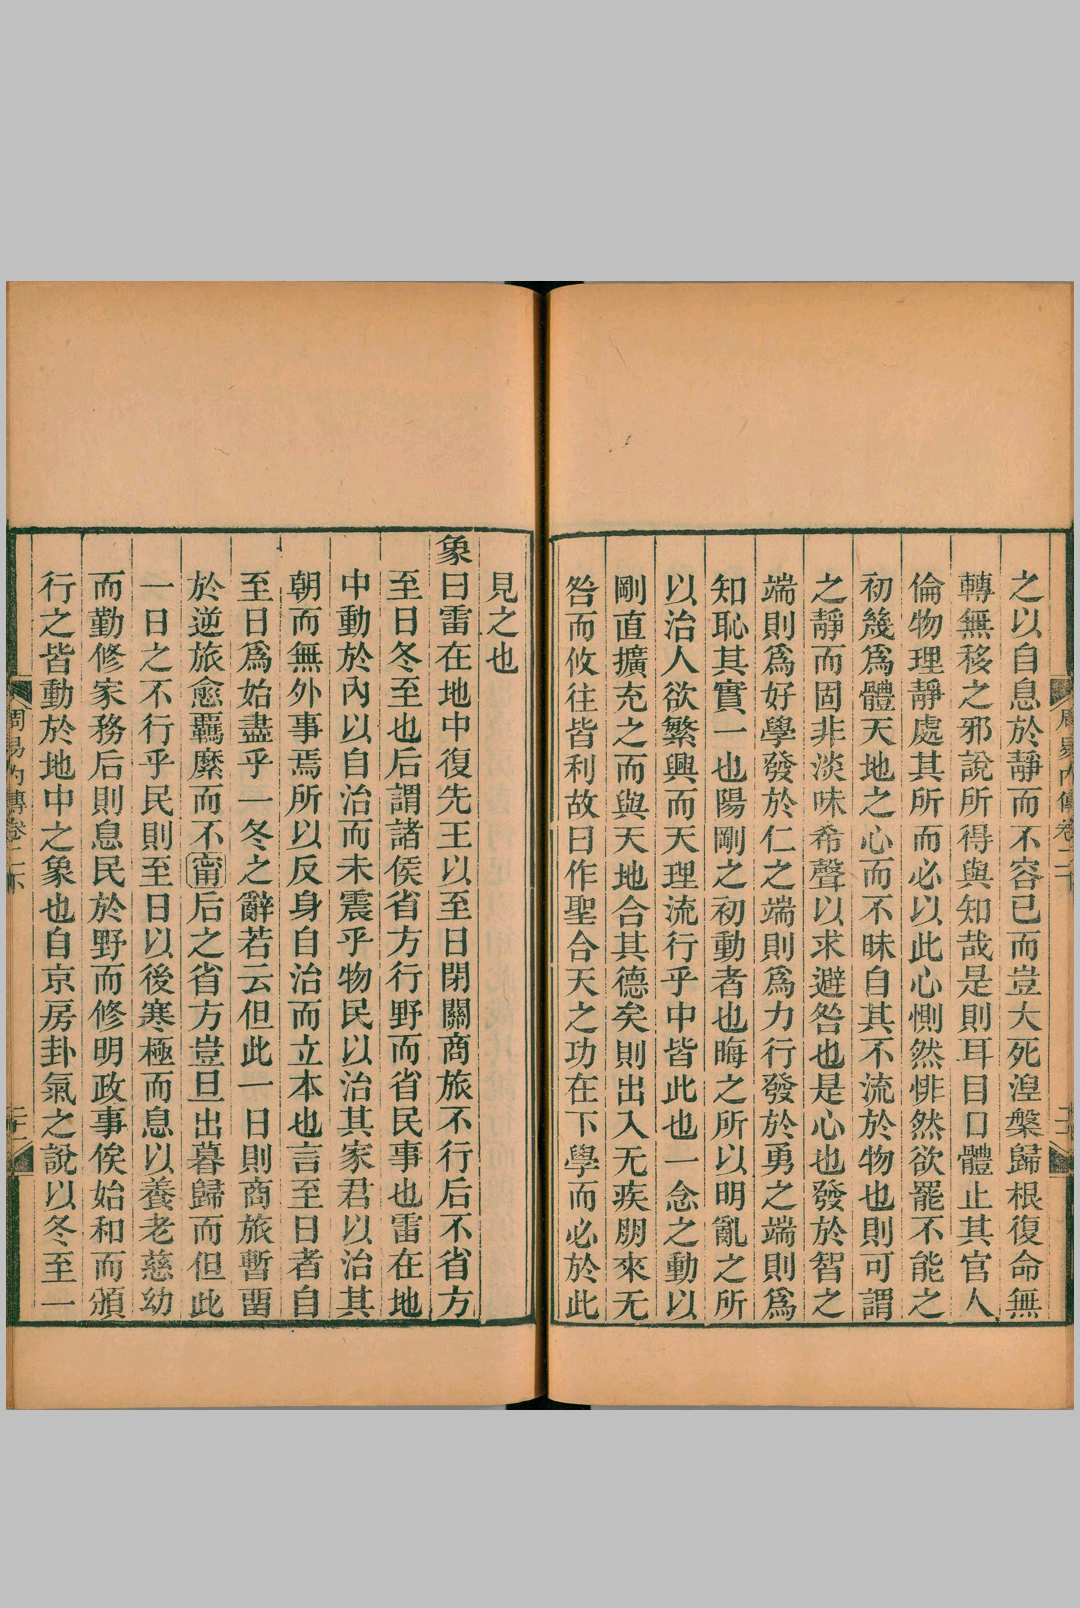 之以自息於靜而不容已而豈大死湼槃歸根復命無
轉無移之邪說所得與知哉是則耳目口體止其官人
倫物理靜處其所而必以此心惻然悱然欲罷不能之
初幾爲體天地之心而不昧自其不流於物也則可謂
之靜而固非淡味希聲以求避咎也是心也發於智之
端則爲好學發於仁之端則爲力行發於勇之端則爲
知恥其實一也陽剛之初動者也晦之所以明亂之所
以治人欲繁興而天理流行乎中皆此也一念之動以
剛直擴充之而與天地合其德矣則出入无疾朋來无
咎而攸往皆利故曰作聖合天之功在下學而必於此
見之也
象曰雷在地中復先王以至日閉關商旅不行后不省方
至日冬至也后謂諸侯省方行野而省民事也雷在地
中動於內以自治而未震乎物民以治其家君以治其
朝而無外事焉所以反身自治而立本也言至日者自
至日爲始盡乎一冬之辭若云但此一日則商旅暫畱
於逆旅愈羈縻而不甯后之省方豈旦出暮歸而但此
一日之不行乎民則至日以後寒極而息以養老慈幼
而勤修家務后則息民於野而修明政事俟始和而頒
行之皆動於地中之象也自京房卦氣之說以冬至一
周易內傳卷二下
二十一